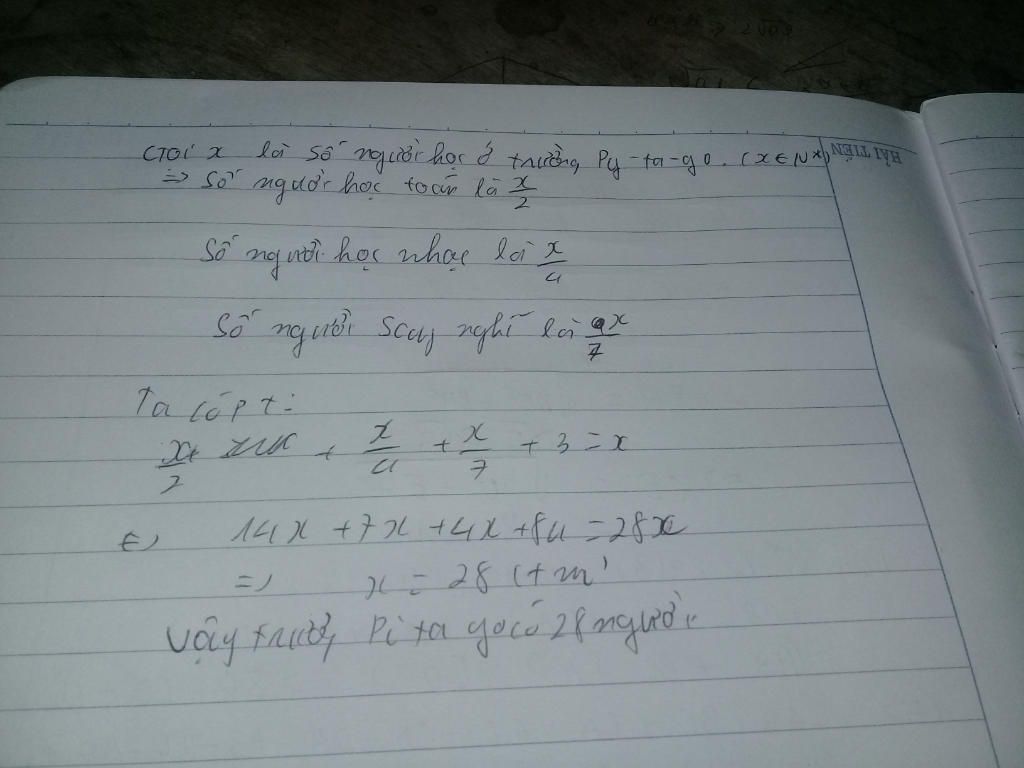 Gọi x là số người học ở trường Py-ta-go. (x ∈ N*)
=> Số người học toán là x/2
Số người học nhạc là x/4
Số người suy nghĩ là x/7
Ta có pt:
x/2 + x/4 + x/7 + 3 = x
<=> 14x + 7x + 4x + 84 = 28x
=> x = 28 (tm)
Vậy trường Pi ta go có 28 người.
HẢI TIẾN